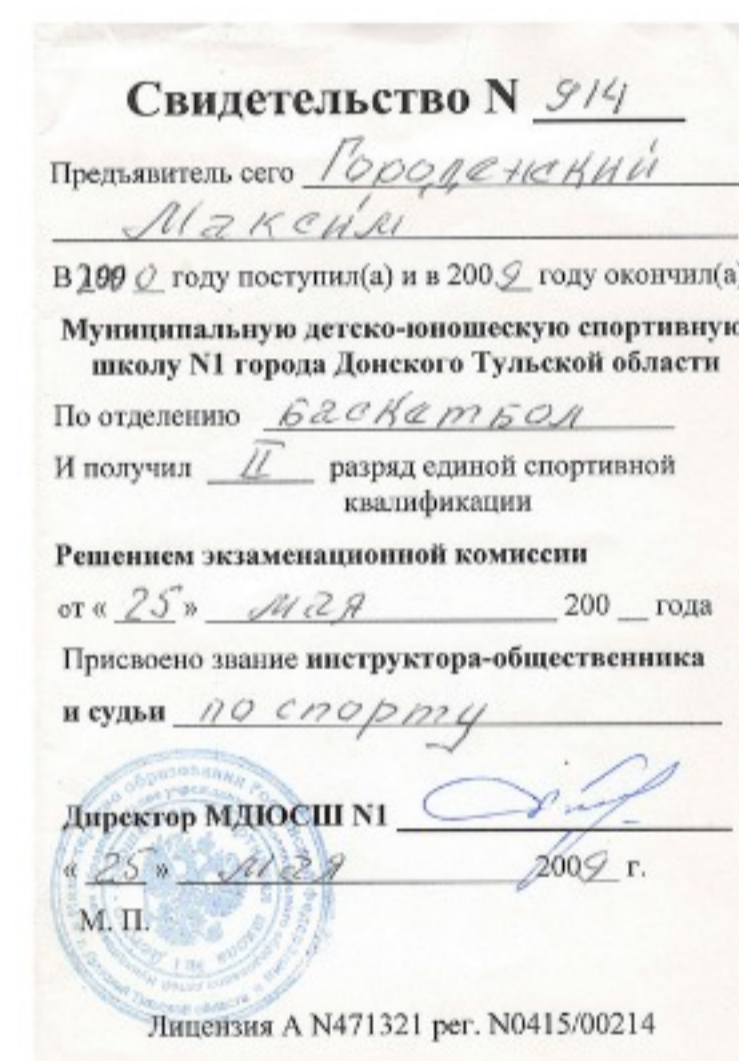 Свидетельство N 914
Предъявитель сего Городенский
Максим
В 2000 году поступил(а) и в 2009 году окончил(а)
Муниципальную детско-юношескую спортивную
школу N1 города Донского Тульской области
По отделению баскетбол
И получил II разряд единой спортивной
квалификации
Решением экзаменационной комиссии
от « 25 » мая 200 __ года
Присвоено звание инструктора-общественника
и судьи по спорту
Директор МДЮСШ N1
« 25 » мая 2009 г.
М. П.
Лицензия А N471321 рег. N0415/00214